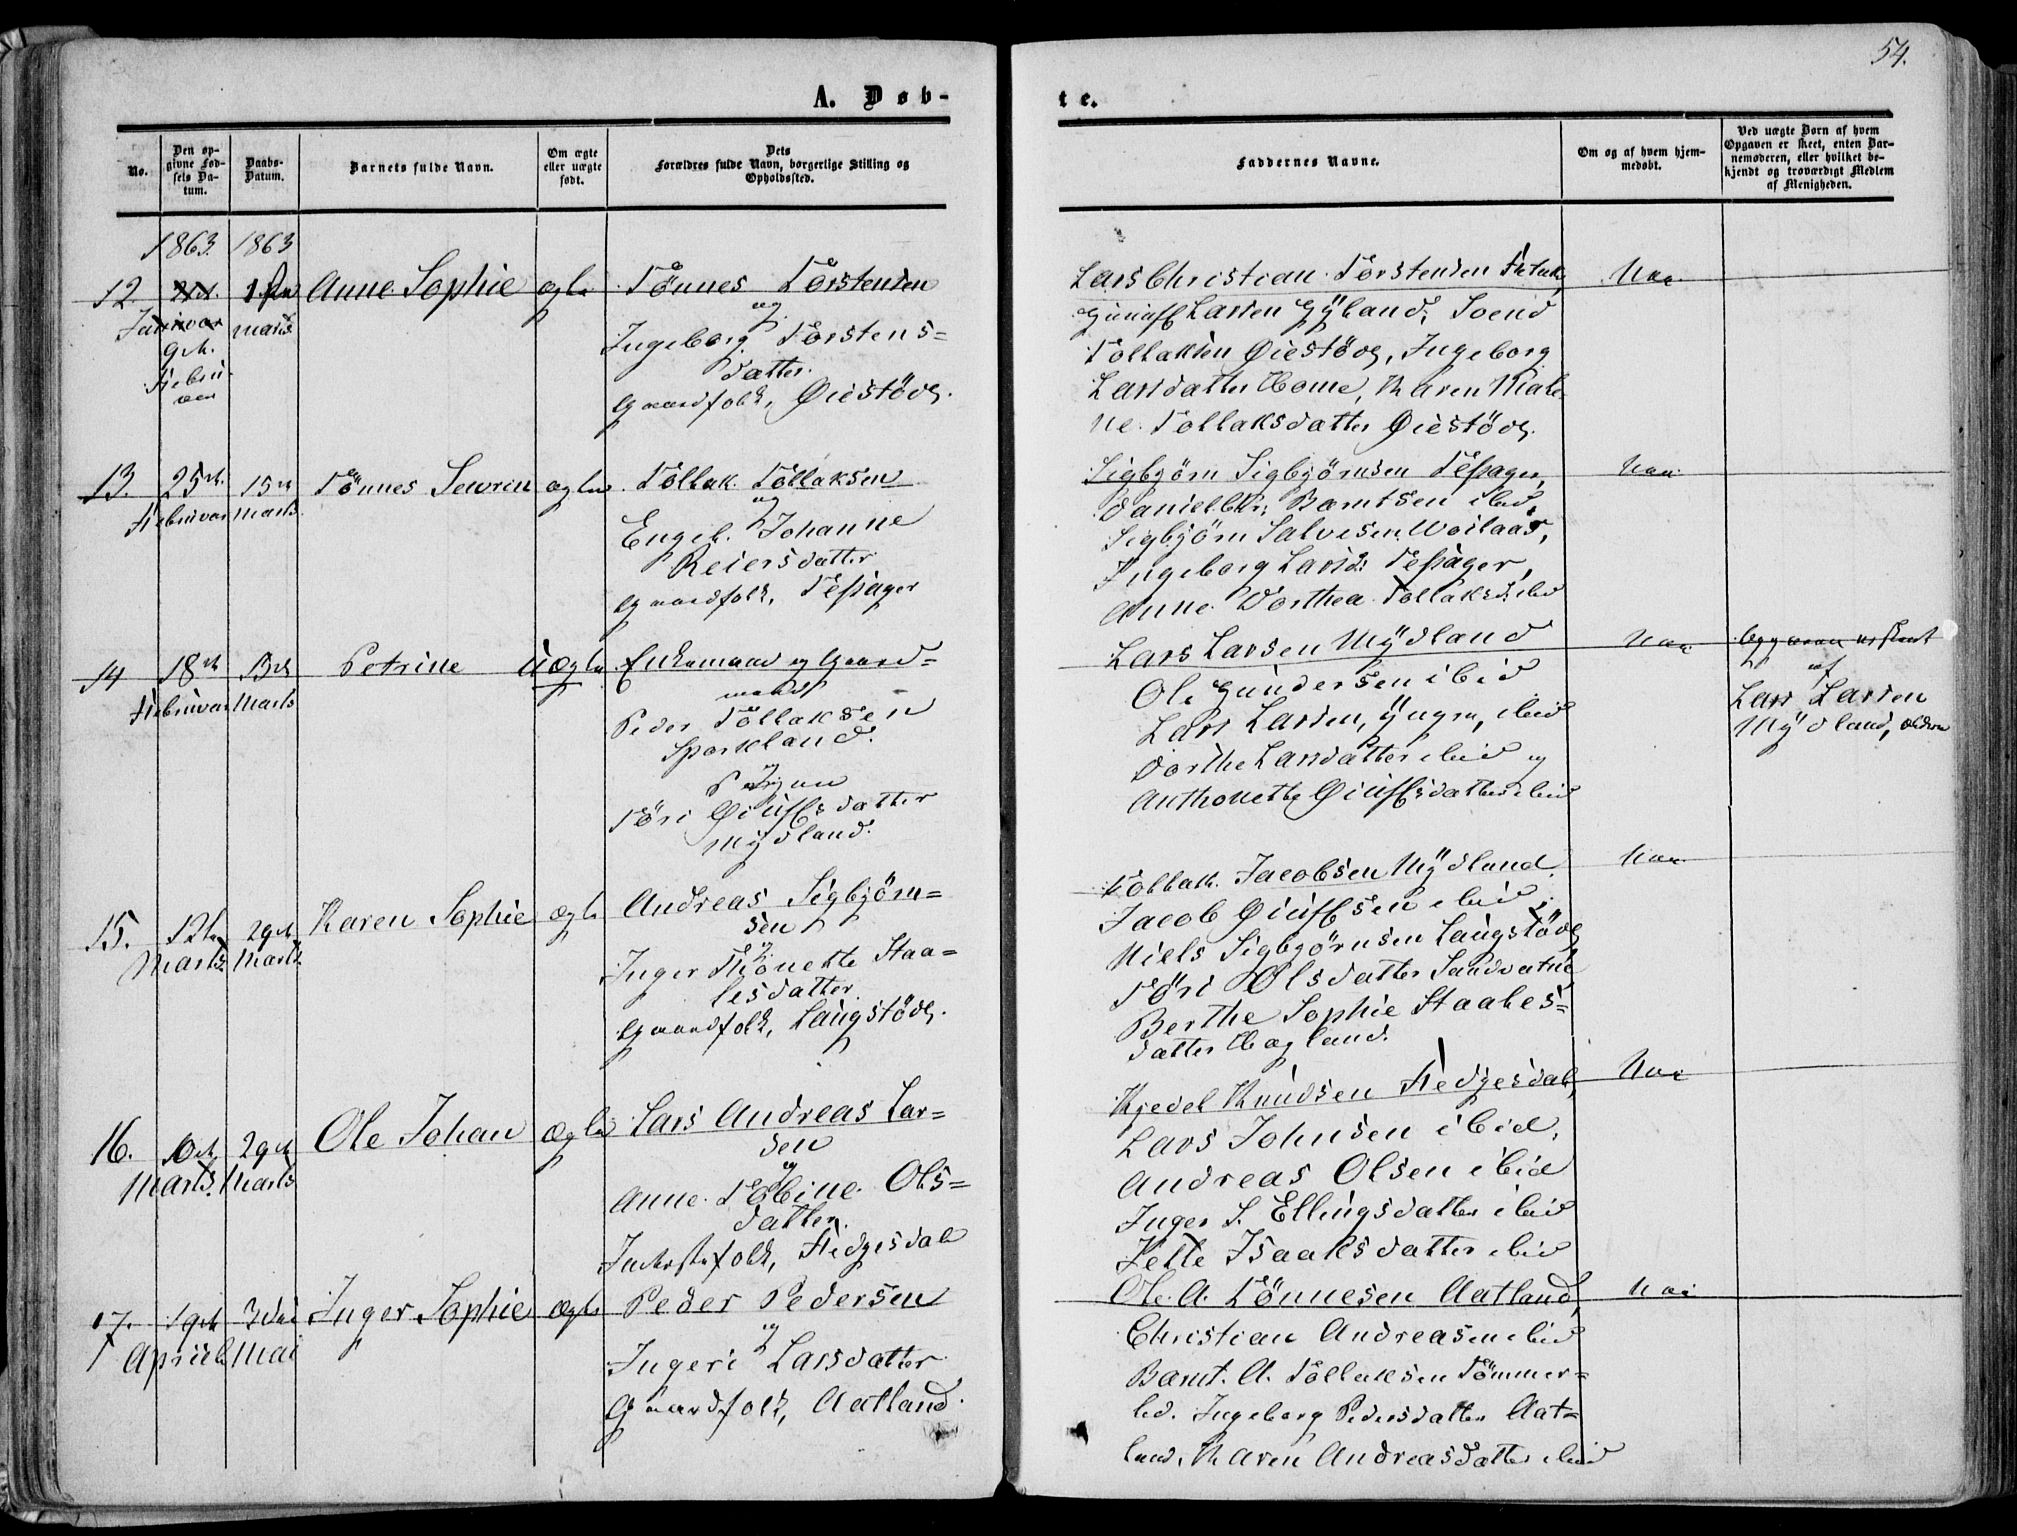 54.
A. Døb-
te.
No.
Den op-
givne Fød-
sels Da-
tum.
Daabs-
Datum.
Barnets fulde Navn.
Om ægte
eller uægte
født.
Dets
Forældres fulde Navn, borgerlige Stilling og
Opholdssted.
Faddernes Navne.
Om og af hvem hjem-
medøbt.
Ved uægte Børn af hvem
Opgaven er skeet, enten Bar-
nemoderen, eller hvilket be-
kjendt og troværdigt Medlem
af Menigheden.
1863. 1863
12
Januar
Marts
Anne Sophie
Tönnes Torstensen
og
Ingeborg Torstens=
datter.
Gaardfolk, Öiestöve.
Lars Christian Torstensen
Larsen Gÿland, Svend
Tollaksen Öiestöve, Ingeborg
Larsdatter Home, Karen Male
ne Tollaksdatter Öiestöve.
Nei
13.
25de
Februar
15de
Marts
Tönnes Sevrin
Tollak Tollaksen
og
Engel Johanne
Reiersdatter
Gaardfolk, Tessager
Sigbjörn Sigbjörnsen Tessager,
Daniel Chr. Berntsen ibid,
Sigbjörn Salvesen
Ingeborg Larsd: Tessager,
Anne Dorthea Tollaksd. ibid
Nei
14
18de
Februar
Marts
Petrine
Enkemand og Gaard=
mand
Peder Tollaksen
og
Pigen
Töri
Mÿdland.
Lars Larsen Mÿdland
Ole Gundersen ibid
Lars Larsen, ÿngre, ibid
Dorthe Larsdatter ibid og
Anthonette ibid
Nei
af
Lars Larsen
Mÿdland, ældre
15.
Marts
29de
Marts
Karen Sophie
Andreas Sigbjörn=
sen
og
Inger Thonette Staa=
lesdatter
Gaardfolk, Langstöve.
Tollak Jacobsen Mÿdland.
Jacob ibid,
Niels Sigbjörnsen Langstöve
Töri Olsdatter Sandvatne
Berthe Sophie Staales=
datter Hagland.
Nei
16.
Marts
29de
Marts
Ole Johan
Lars Andreas Lar=
sen
og
Anne Tobine Ols=
datter.
Inderstefolk, Fidjesdal
Kjedel Knudsen Fedjesdal,
Lars Johnsen ibid,
Andreas Olsen ibid
Inger S. Ellingsdatter ibid
Isaaksdatter ibid
Nei
17.
19de
April
3die
Mai
Inger Sophie
Peder Pedersen
og
Ingeri Larsdatter
Gaardfolk, Aatland.
Ole A. Tönnesen Aatland,
Christian Andreasen ibid
Bernt A. Tollaksen Tömmer=
Ingeborg Pedersdatter Aat=
land, Karen Andreasdatter ibid
Nei